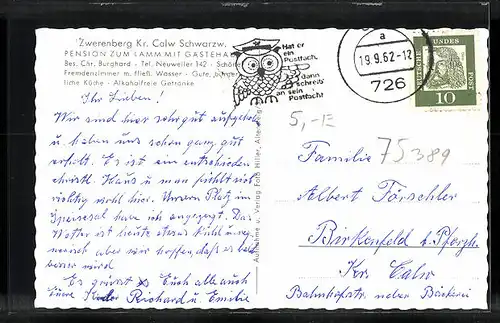 Zwerenberg Kr. Calw Schwarzw.
PENSION ZUM LAMM MIT GÄSTEHA
Bes. Chr. Burghard - Tel. Neuweiler 142 - Schöne
Fremdenzimmer m. fließ. Wasser - Gute, bürger-
liche Küche - Alkoholfreie Getränke
Ihr Lieben!
Wir sind hier sehr gut aufgehob
u. haben uns schon ganz gut
erholt. Es ist ein entschieden
christl. Haus u man fühlt sich
richtig wohl hier. Unseren Platz im
Speisesaal habe ich angezeigt. Das
Wetter ist heute etwas kühl u reg-
nerisch aber wir hoffen, daß es bald
besser wird.
Es grüsst Euch alle auch
Eure Richard u. Emilie
Aufnahme u. Verlag Foto Hiller,
Hat er
ein
Postfach,
dann
schreib'
an sein
Postfach!
a
19.9.62-12
726
BUNDES
DEUTSCHE
10
5,-E
75389
Familie
Albert Förschler
Birkenfeld b. Pforzh.
Kr. Calw
Bahnhofstr. neben Bäckerei